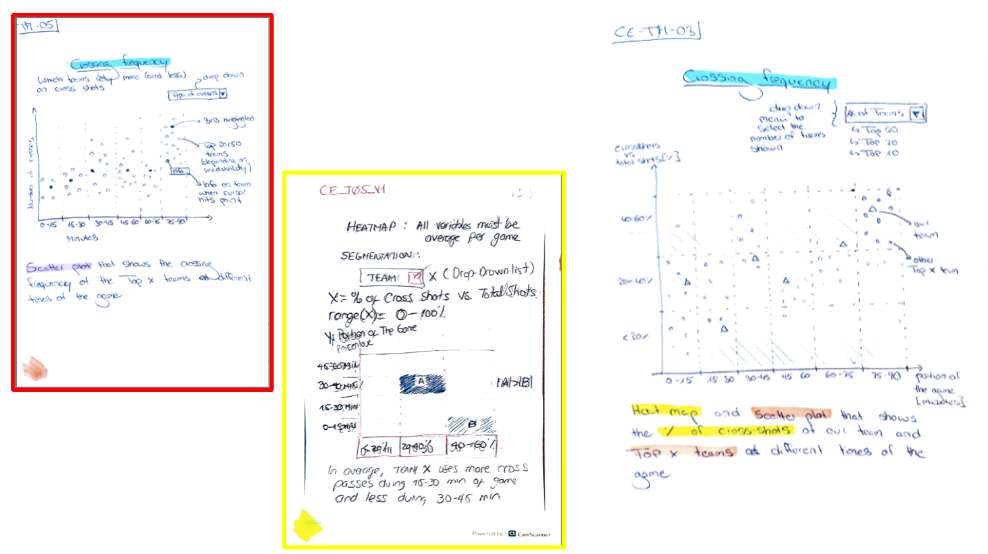 TM-05
Crossing frequency
Which teams rely more (and less)
on cross shots
drop down
Type of crosses
BVB highlighted
Top 20/50
teams
(depending on
readability)
Info
Info on team
when cursor
hits point
Number of crosses
0-15 15-30 30-45 45-60 60-75 75-90
Minutes
Scatter plot that shows the crossing
frequency of the Top X teams at different
times of the game
CE_T05_V1
HEATMAP : All variables must be
average per game
SEGMENTATION:
TEAM1 X (Drop-Down list)
X = % of Cross Shots vs. Total Shots
range(X) = 0 - 100%
Y: Portion of The Game
45-30 Min
30-40 Min
15-30 Min
0-15 Min
A
|A|>|B|
B
0-20% 20-40% 40-60%
In average, TEAM X uses more cross
passes during 15-30 min of game
and less during 30-45 min
Powered by CS CamScanner
CE-TM-03
Crossing frequency
drop down
menu to
select the
number of teams
shown
# of Teams
↳ Top 50
↳ Top 20
↳ Top 10
cross shots
vs
total shots [%]
40-60%
20-40%
<20%
our
team
other
Top X team
0-15 15-30 30-45 45-60 60-75 75-90
portion of
the game
[minutes]
Heat map and Scatter plot that shows
the % of cross-shots of our team and
Top X teams at different times of the
game